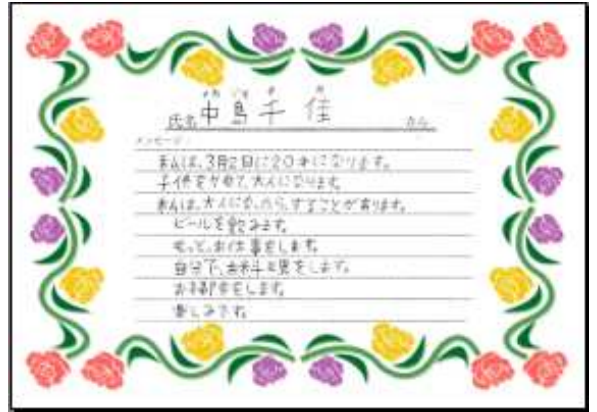 氏名 中島千佳 から
メッセージ:
私は、3月2日に20才になります。
子供をやめて、大人になります。
私は、大人になったら、することが有ります。
ビールを飲みます。
もっと、お仕事をします。
自分で、お料理をします。
をします。
楽しみです。